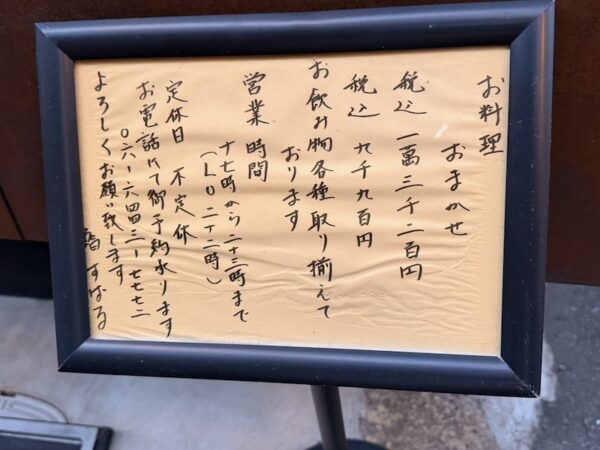 お料理
おまかせ
税込 一萬三千二百円
税込 九千九百円
お飲み物各種取り揃えて
おります
営業時間
十七時から二十三時まで
(LO二十二時)
定休日 不定休
お電話にて御予約承ります
〇六-六四四三-七七七二
よろしくお願い致します
すばる